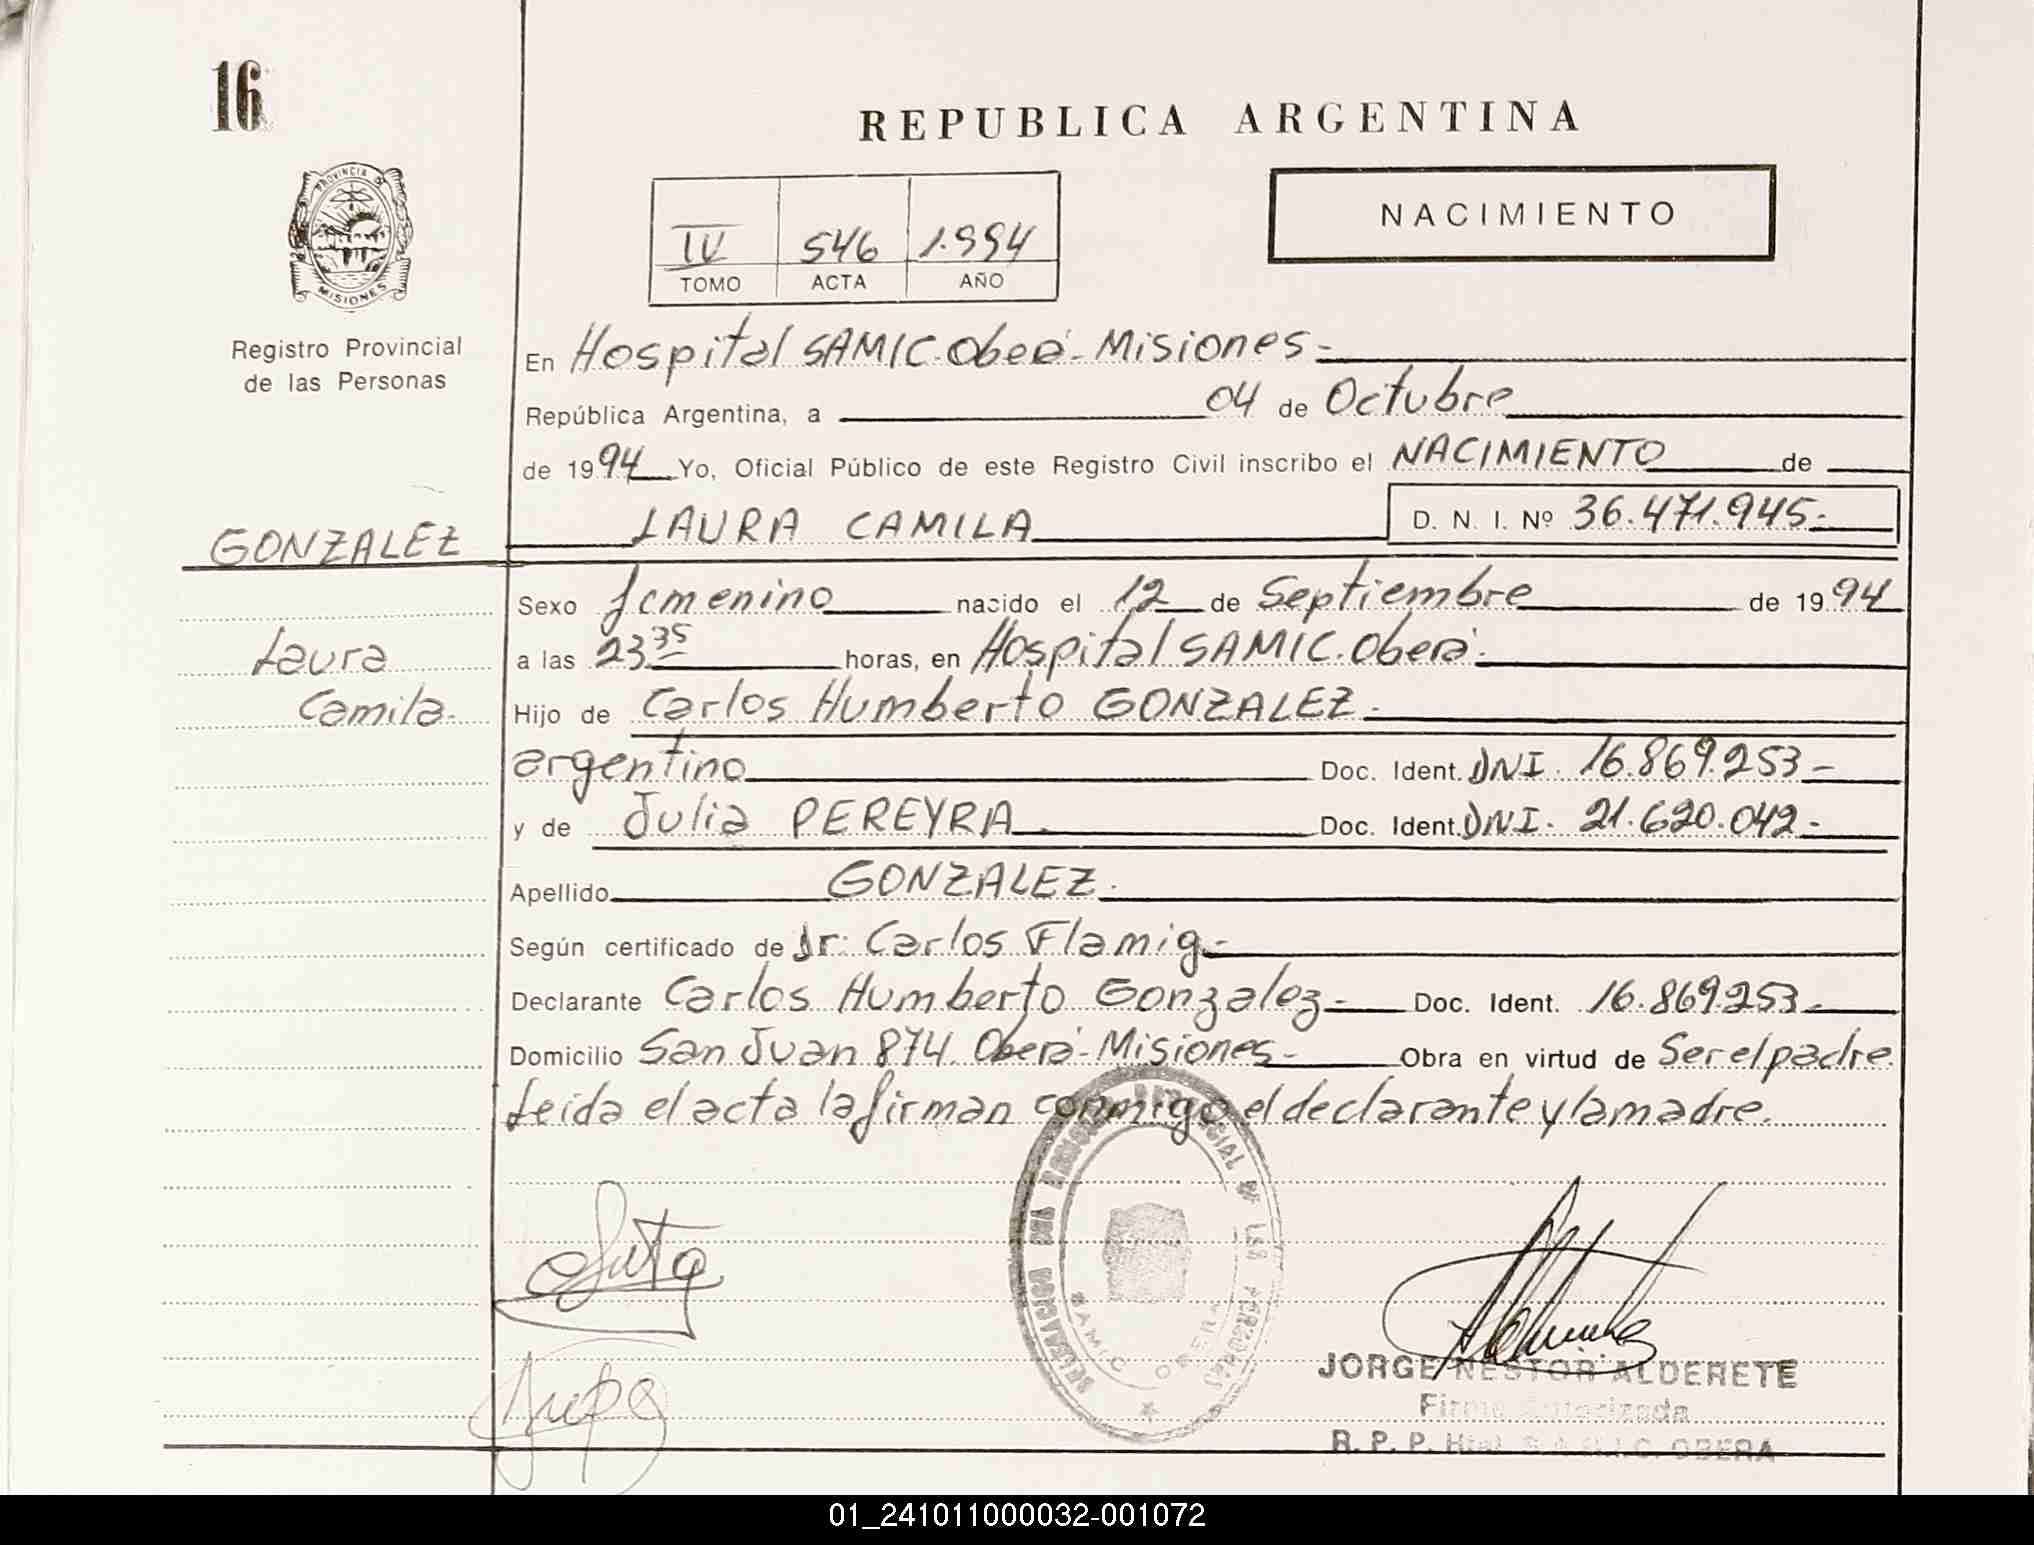 16
REPUBLICA ARGENTINA
PROVINCIA DE
MISIONES
Registro Provincial
de las Personas
IV 546 1.994
TOMO ACTA AÑO
NACIMIENTO
En Hospital SAMIC. Oberá - Misiones -
República Argentina, a 04 de Octubre
de 1994 Yo, Oficial Público de este Registro Civil inscribo el NACIMIENTO de
GONZALEZ LAURA CAMILA D. N. I. Nº 36.471.945.-
Sexo femenino nacido el 12 de Septiembre de 1994
Laura a las 23 35 horas, en Hospital SAMIC. Oberá.
Camila.- Hijo de Carlos Humberto GONZALEZ.-
argentino Doc. Ident. DNI. 16.869.253 -
y de Julia PEREYRA. Doc. Ident. DNI. 21.620.042 -
Apellido GONZALEZ.
Según certificado de Dr. Carlos Flamig.-
Declarante Carlos Humberto Gonzalez - Doc. Ident. 16.869.253 -
Domicilio San Juan 874 Oberá - Misiones - Obra en virtud de Ser el padre.
Leida el acta la firman conmigo el declarante y la madre.
SAMIC OBERA
JORGE NESTOR ALDERETE
Firma Autorizada
R. P. P. Htal. S.A.M.I.C. OBERA
01_241011000032-001072